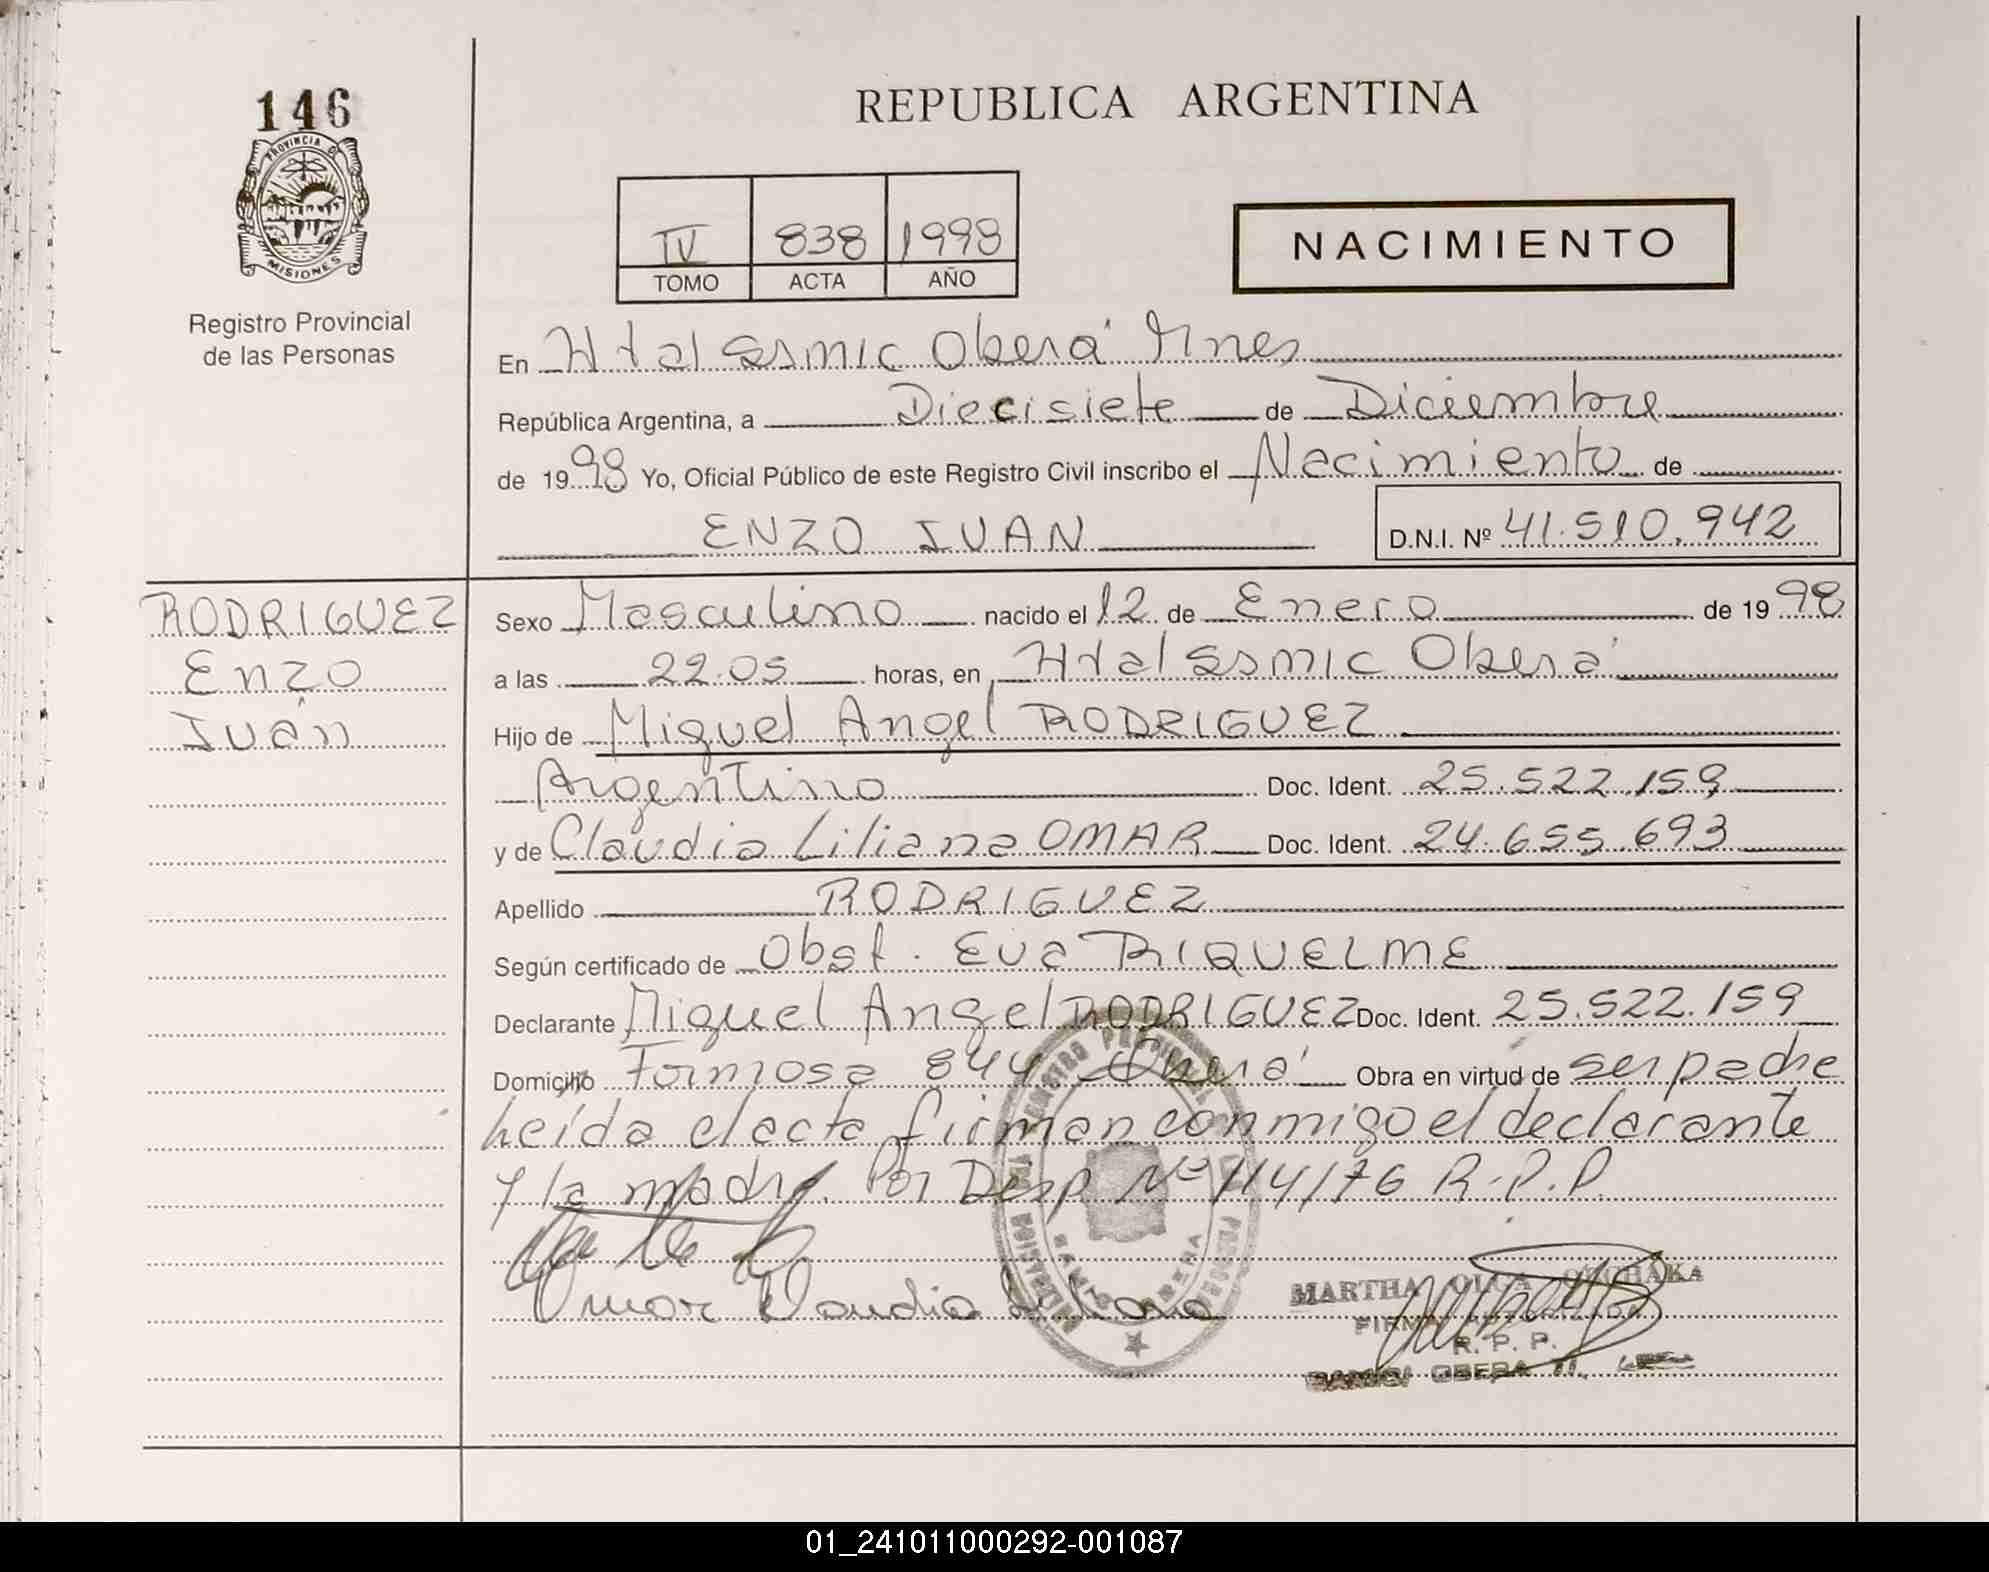 146
PROVINCIA D
MISIONES
Registro Provincial
de las Personas
REPUBLICA ARGENTINA
IV 838 1998
TOMO ACTA AÑO
NACIMIENTO
En Htal SSMIC Oberá Mnes
República Argentina, a Diecisiete de Diciembre
de 1998 Yo, Oficial Público de este Registro Civil inscribo el Nacimiento de
ENZO IVAN
D.N.I. Nº 41.510.942
RODRIGUEZ
Enzo
Iván
Sexo Masculino nacido el 12 de Enero de 1998
a las 22.05 horas, en Htal SSMIC Oberá
Hijo de Miguel Angel RODRIGUEZ
Argentino Doc. Ident. 25.522.159
y de Claudia Liliana OMAR Doc. Ident. 24.655.693
Apellido RODRIGUEZ
Según certificado de Obst. Eva RIQUELME
Declarante Miguel Angel RODRIGUEZ Doc. Ident. 25.522.159
Domicilio Formosa 844 Oberá Obra en virtud de ser padre
Leída el acta firman conmigo el declarante
y la madre. Por Disp Nº 114/76 R.P.P.
Omar Claudia Liliana
MARTHA OLGA
FIRMA AUTORIZADA
R. P. P.
OBERA
01_241011000292-001087